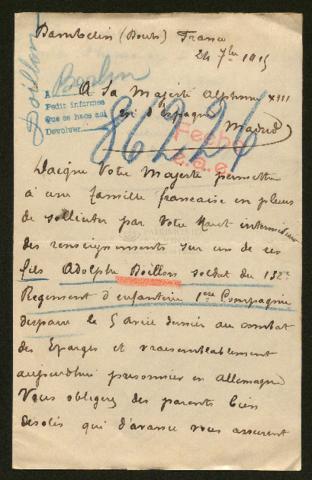 (Doubs) France
24 7bre 1915
Boillon
Berlin
A
Pedir informes
Que se haga aqui
Devolver
A Sa Majesté Alphonse XIII
roi d'Espagne
Madrid
86226
Fecho
Daigne Votre Majesté permettre
à une famille française en pleurs
de solliciter par Votre Haut intermédiaire
des renseignements sur un de ses
fils Adolphe Boillon soldat du 132e
Régiment d'infanterie 1ere Compagnie
disparu le 5 avril dernier au combat
des Eparges et vraisemblablement
aujourd'hui prisonnier en Allemagne
Vous obligerez des parents bien
désolés qui d'avance vous assurent